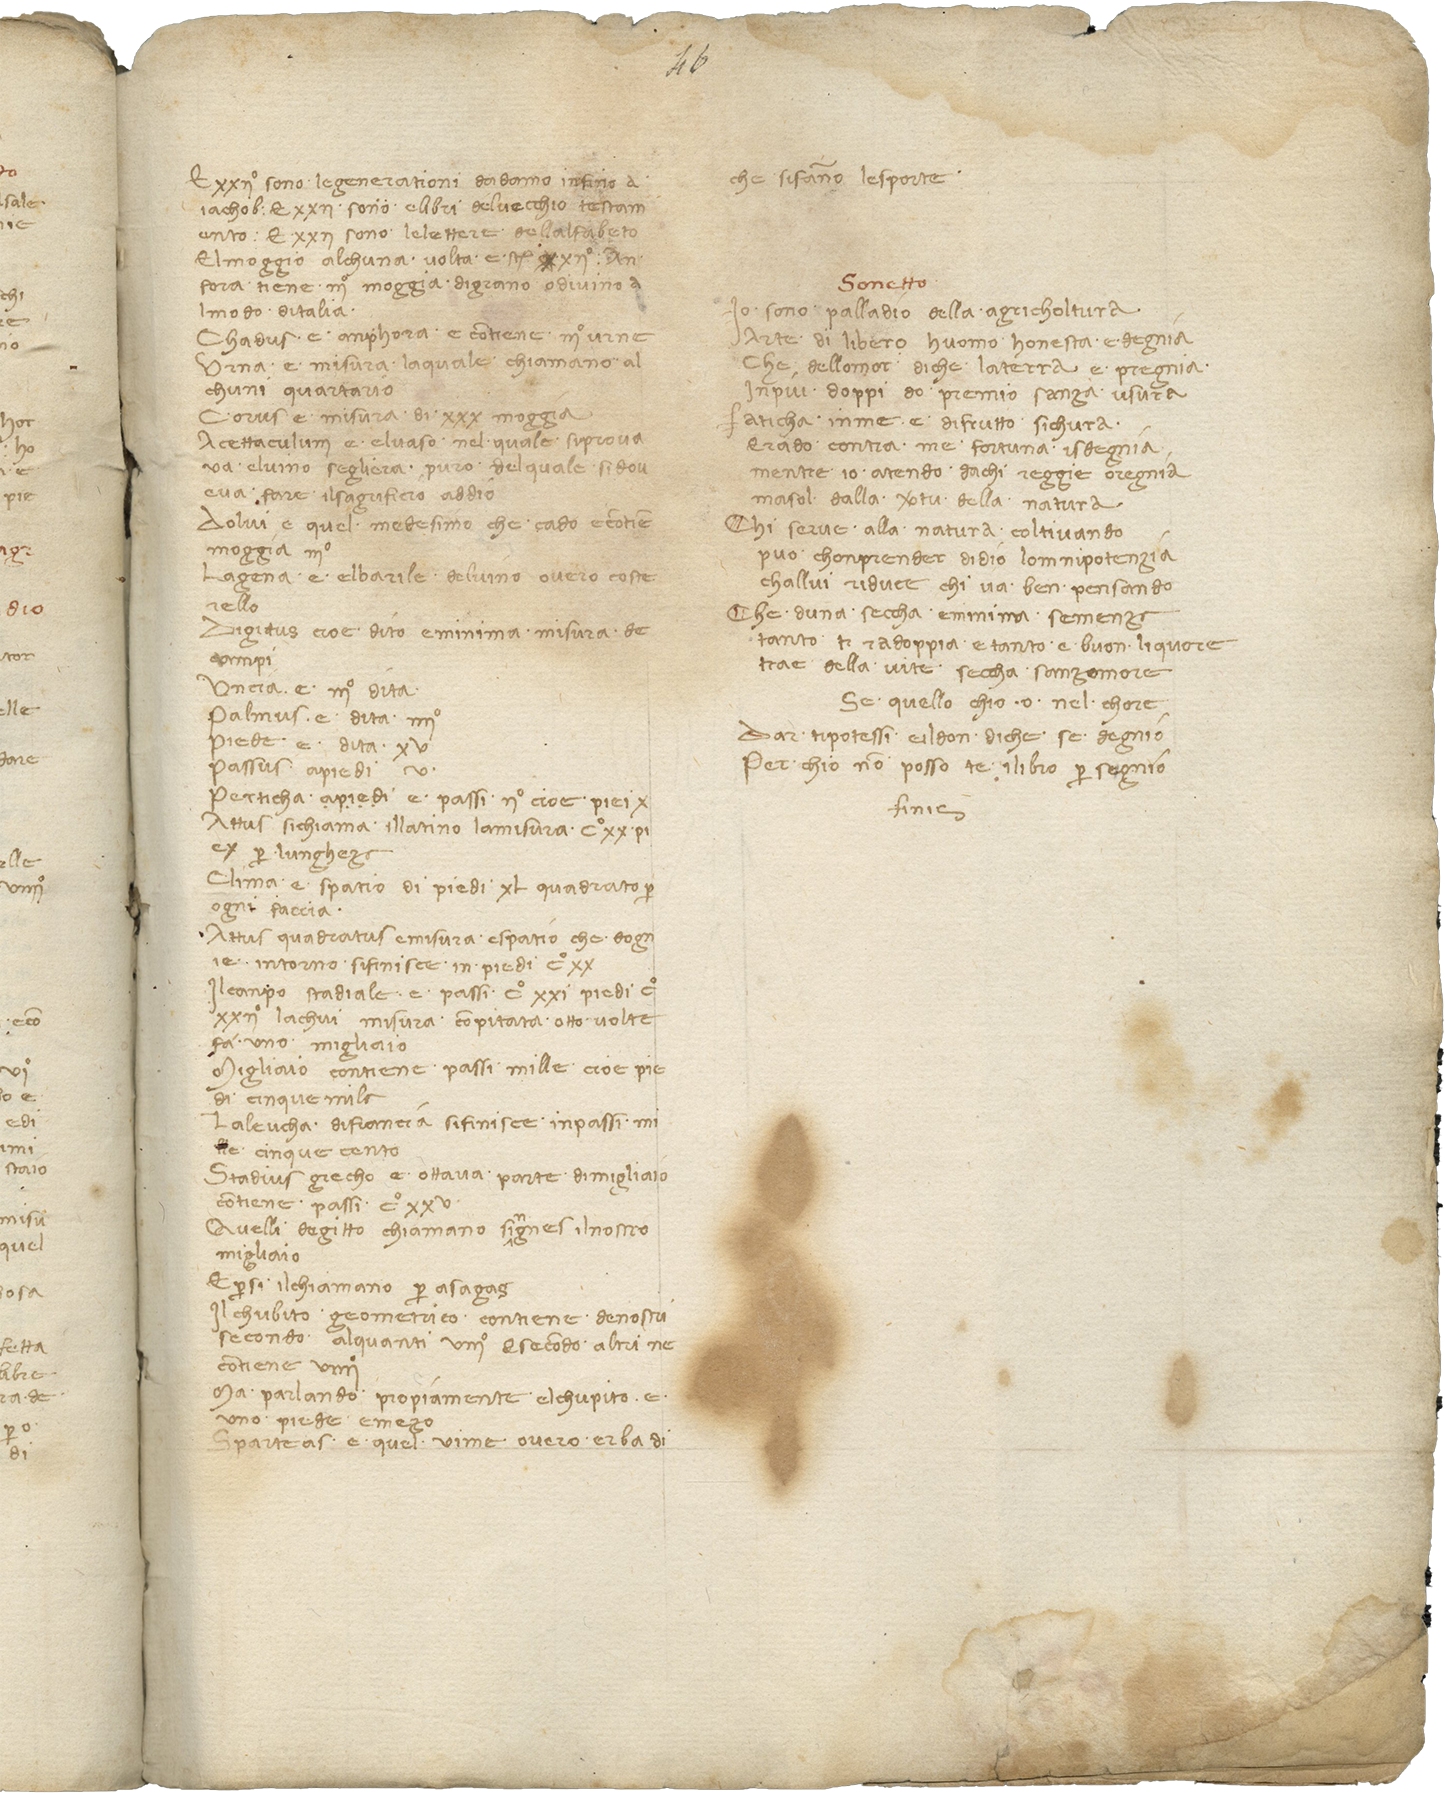 46
E xxii° sono legenerationi dadamo infino a
iachob: E xxii sono elibri deluecchio testam
ento: E xxii sono lelettere dellalfabeto
Elmoggio alchuna uolta e xxii° An
fora tiene iii° moggia digrano odiuino a
lmodo ditalia
Chadus e amphora e cōtiene iii° urne
Vrna e misura laquale chiamano al
chuni quartario
Corus e misura di xxx moggia
Acettaculum e eluaso nel quale siproua
ua eluino seglera puro delquale si dou
eua fare ilsagrificio addio
Dolui e quel medesimo che cado e cōtiē
moggia iii°
Lagena e elbarile deluino ouero coste
rello
Digitus cioe dito eminima misura de
campi
Vncia e iii° dita
Palmus e dita iiii°
Piede e dita xv
Passus apiedi v
Perticha apiedi e passi ii° cioe piei x
Attus sichiama illatino lamisura c° xx pi
ex ꝑ lungheza
Clima e spatio di piedi xl quadrato ꝑ
ogni faccia
Attus quadratus emisura espatio che dogn
ie intorno sifinisce in piedi c° xx
Il canpo stadiale e passi c° xxi piedi c°
xxii° lachui misura cōpitata otto uolte
fa uno migliaio
Migliaio contiene passi mille cioe pie
di cinque mila
Laleucha difrancia sifinisce inpassi mi
lle cinque cento
Stadius grecho e ottaua parte dimigliaio
cōtiene passi c° xxv
Quelli degitto chiamano signes ilnostro
migliaio
E ꝑsi ilchiamano ꝑ asagas
Il chubito geometrico contiene denostri
secondo alquanti viii° E secōdo altri ne
cōtiene viiii°
Ma parlando propiamente elchupito e
uno piede emezo
Sparteas e quel uime ouero erba di
che sifāno lesporte
Sonetto
Io sono palladio della agricholtura
Arte di libero huomo honesta e degnia
Che dellomor diche laterra e pregnia
Inpiu doppi do premio sanza usura
Faticha inme e difrutto sichura
Erado contra me fortuna isdegnia
mentre io atendo dachi reggie oregnia
masol dalla xtu della natura
Chi serue alla natura coltiuando
puo chonprender didio lomnipotenzia
challui riduce chi ua ben pensando
Che duna seccha eminima semenza
tanto ti radoppia e tanto e buon liquore
trae della uite seccha sanzomore
Se quello chio o nel chore
Dar tipotessi eildon diche se degnio
Per chio nō posso te ilibro ꝑ segnio
finis